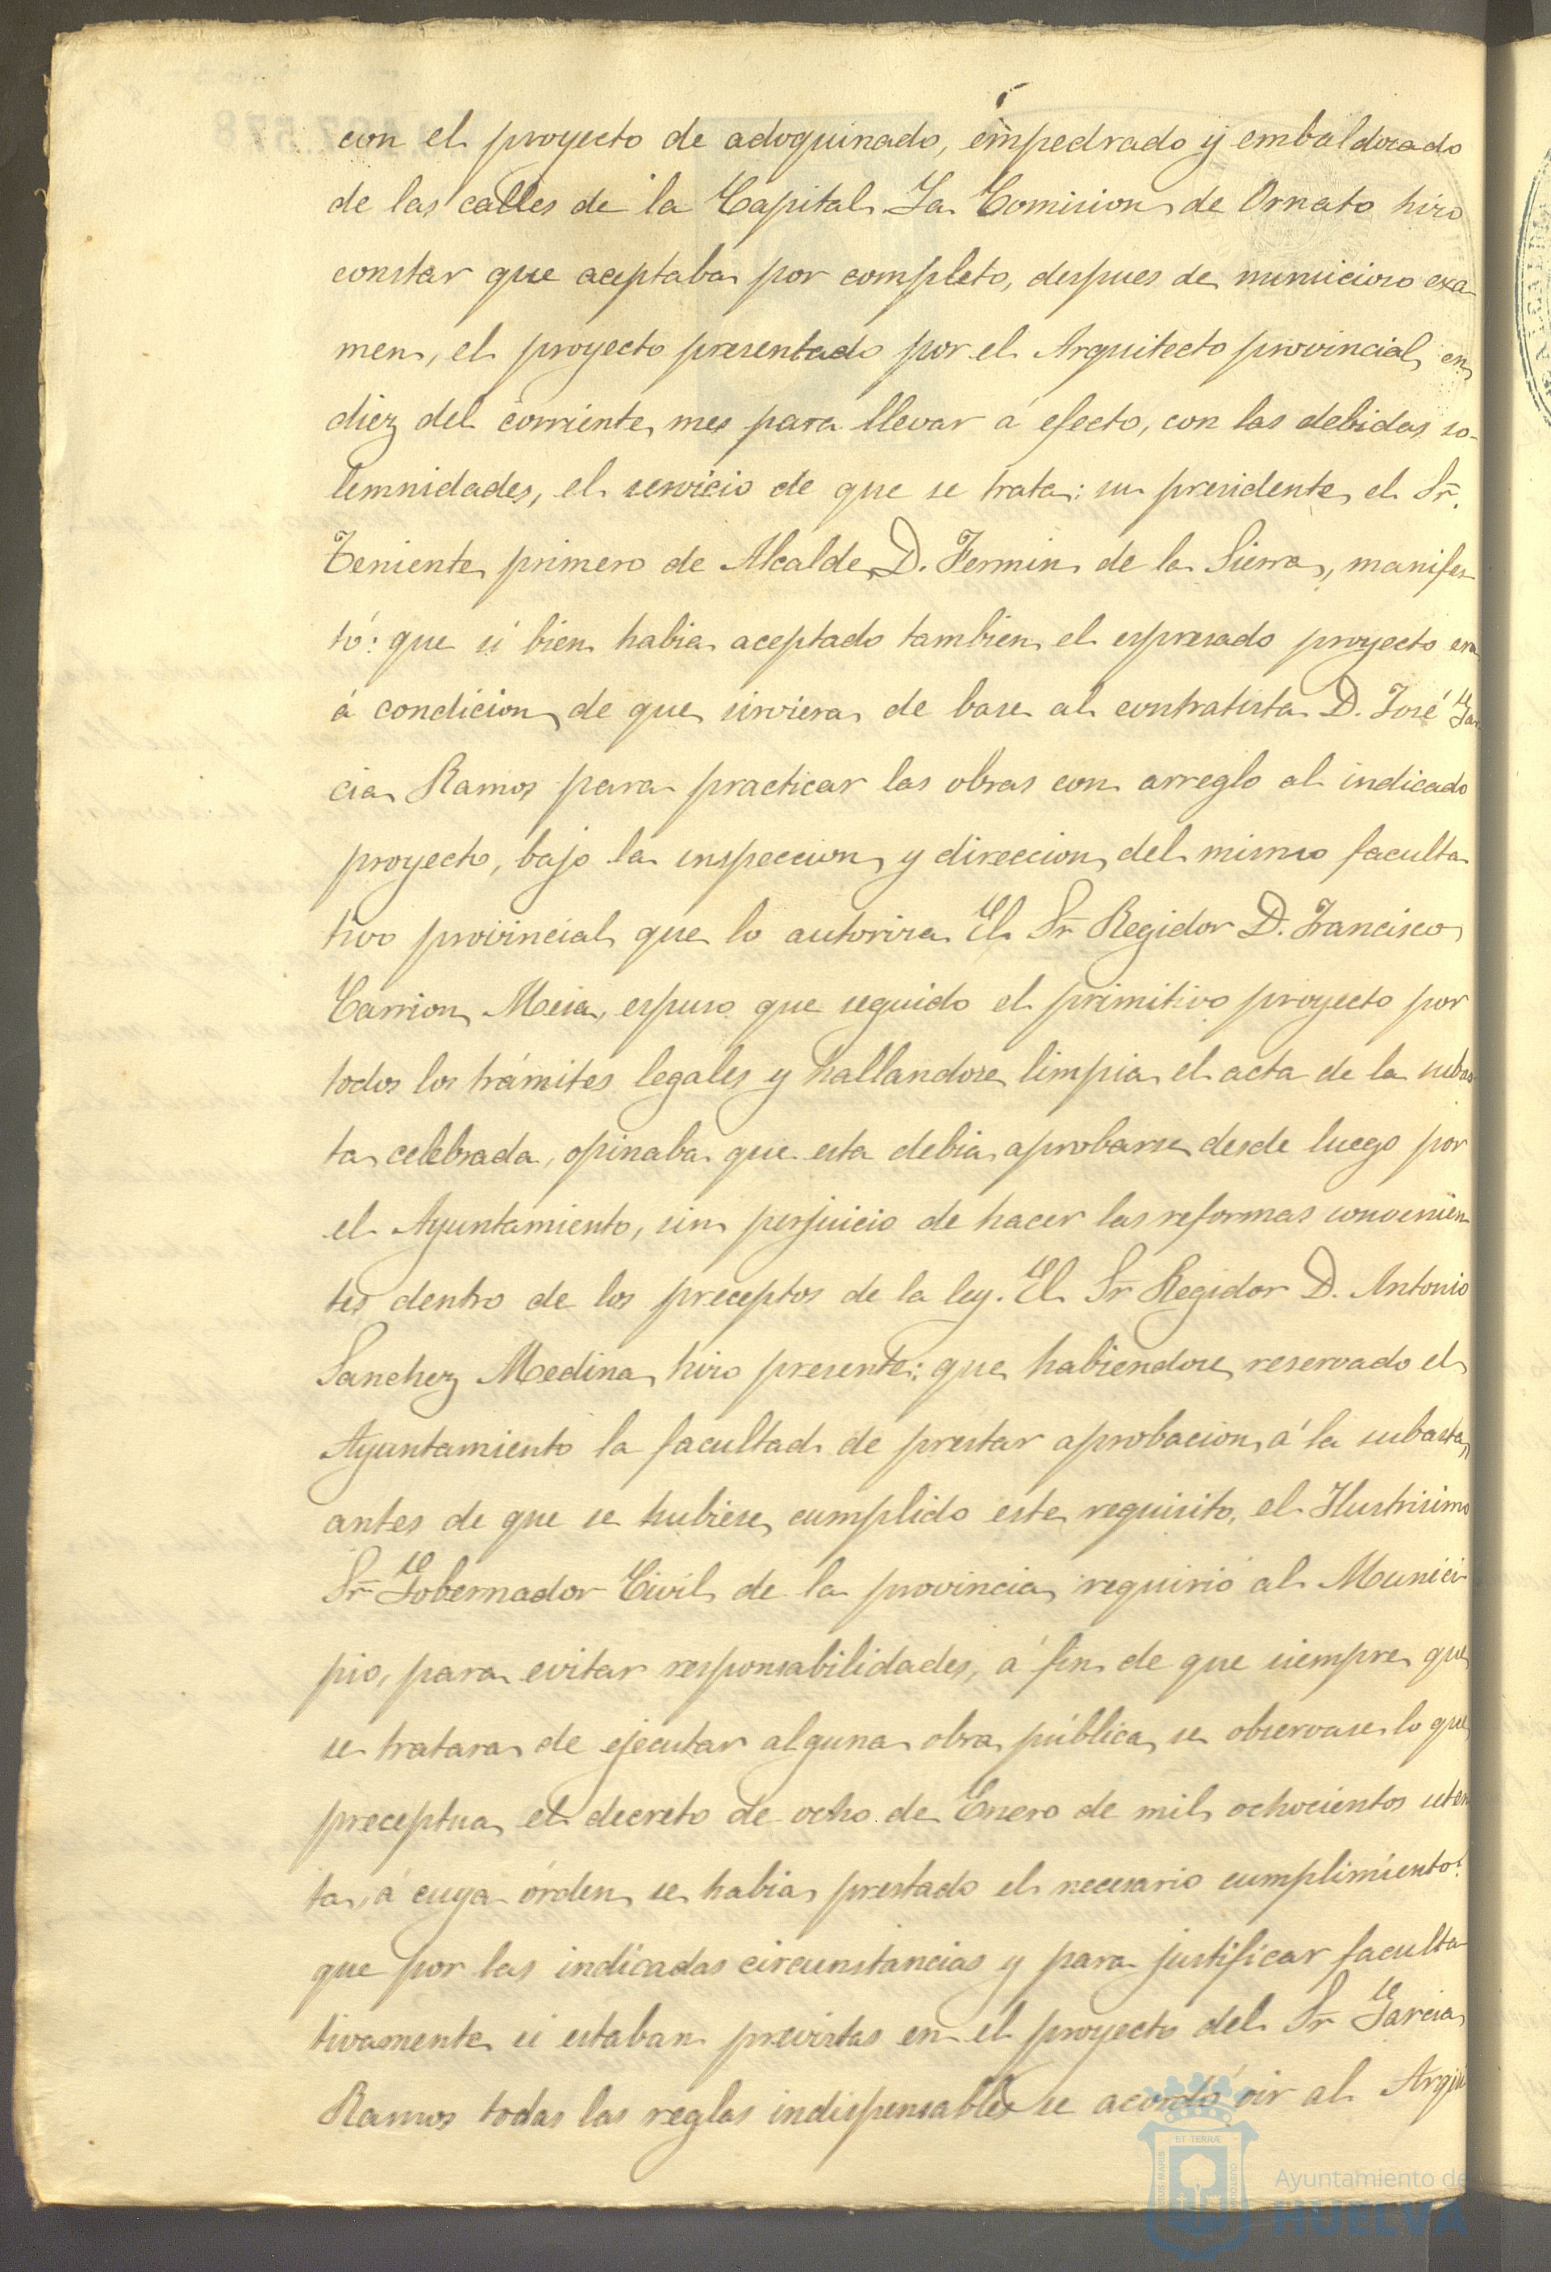 con el proyecto de adoquinado, empedrado y embaldosado
de las calles de la Capital. La Comision de Ornato hizo
constar que aceptaba por completo, despues de minucioso exa
men, el proyecto presentado por el Arquitecto provincial en
diez del corriente mes para llevar á efecto, con las debidas so-
lemnidades, el servicio de que se trata: su presidente, el Sr.
Teniente primero de Alcalde, D. Fermin de la Sierra, manifes
tó: que si bien habia aceptado tambien el espresado proyecto era
á condicion de que sirviera de base al contratista D. José Gar
cia Ramos para practicar las obras con arreglo al indicado
proyecto, bajo la inspeccion y direccion del mismo faculta
tivo provincial que lo autoriza. El Sr Regidor D. Francisco
Carrion Mesa, espuso que seguido el primitivo proyecto por
todos los trámites legales y hallandose limpia el acta de la subas
ta celebrada, opinaba que esta debia aprobarse desde luego por
el Ayuntamiento, sin perjuicio de hacer las reformas convenien
tes dentro de los preceptos de la ley. El Sr Regidor D. Antonio
Sanchez Medina hizo presente: que habiendose reservado el
Ayuntamiento la facultad de prestar aprobacion á la subasta,
antes de que se hubiese cumplido este requisito, el Ilustrisimo
Sr Gobernador Civil de la provincia requirió al Munici
pio, para evitar responsabilidades, á fin de que siempre que
se tratara de ejecutar alguna obra pública se observase lo que
preceptua el decreto de ocho de Enero de mil ochocientos seten
ta, á cuya órden se habia prestado el necesario cumplimiento:
que por las indicadas circunstancias y para justificar faculta
tivamente si estaban previstas en el proyecto del Sr Garcia
Ramos todas las reglas indispensables se acordó oir al Arqui
Ayuntamiento de
HUELVA